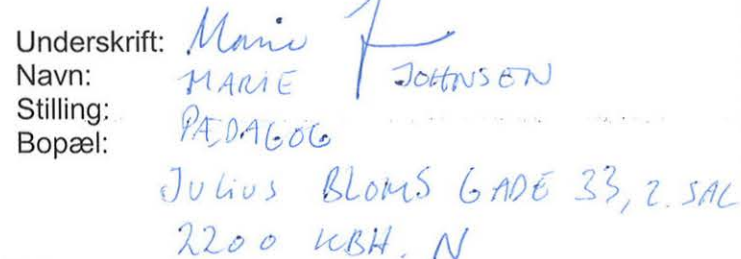 Underskrift: Marie J
Navn: MARIE JOHNSEN
Stilling: PÆDAGOG
Bopæl:
JULIUS BLOMS GADE 33, 2. SAL
2200 KBH. N